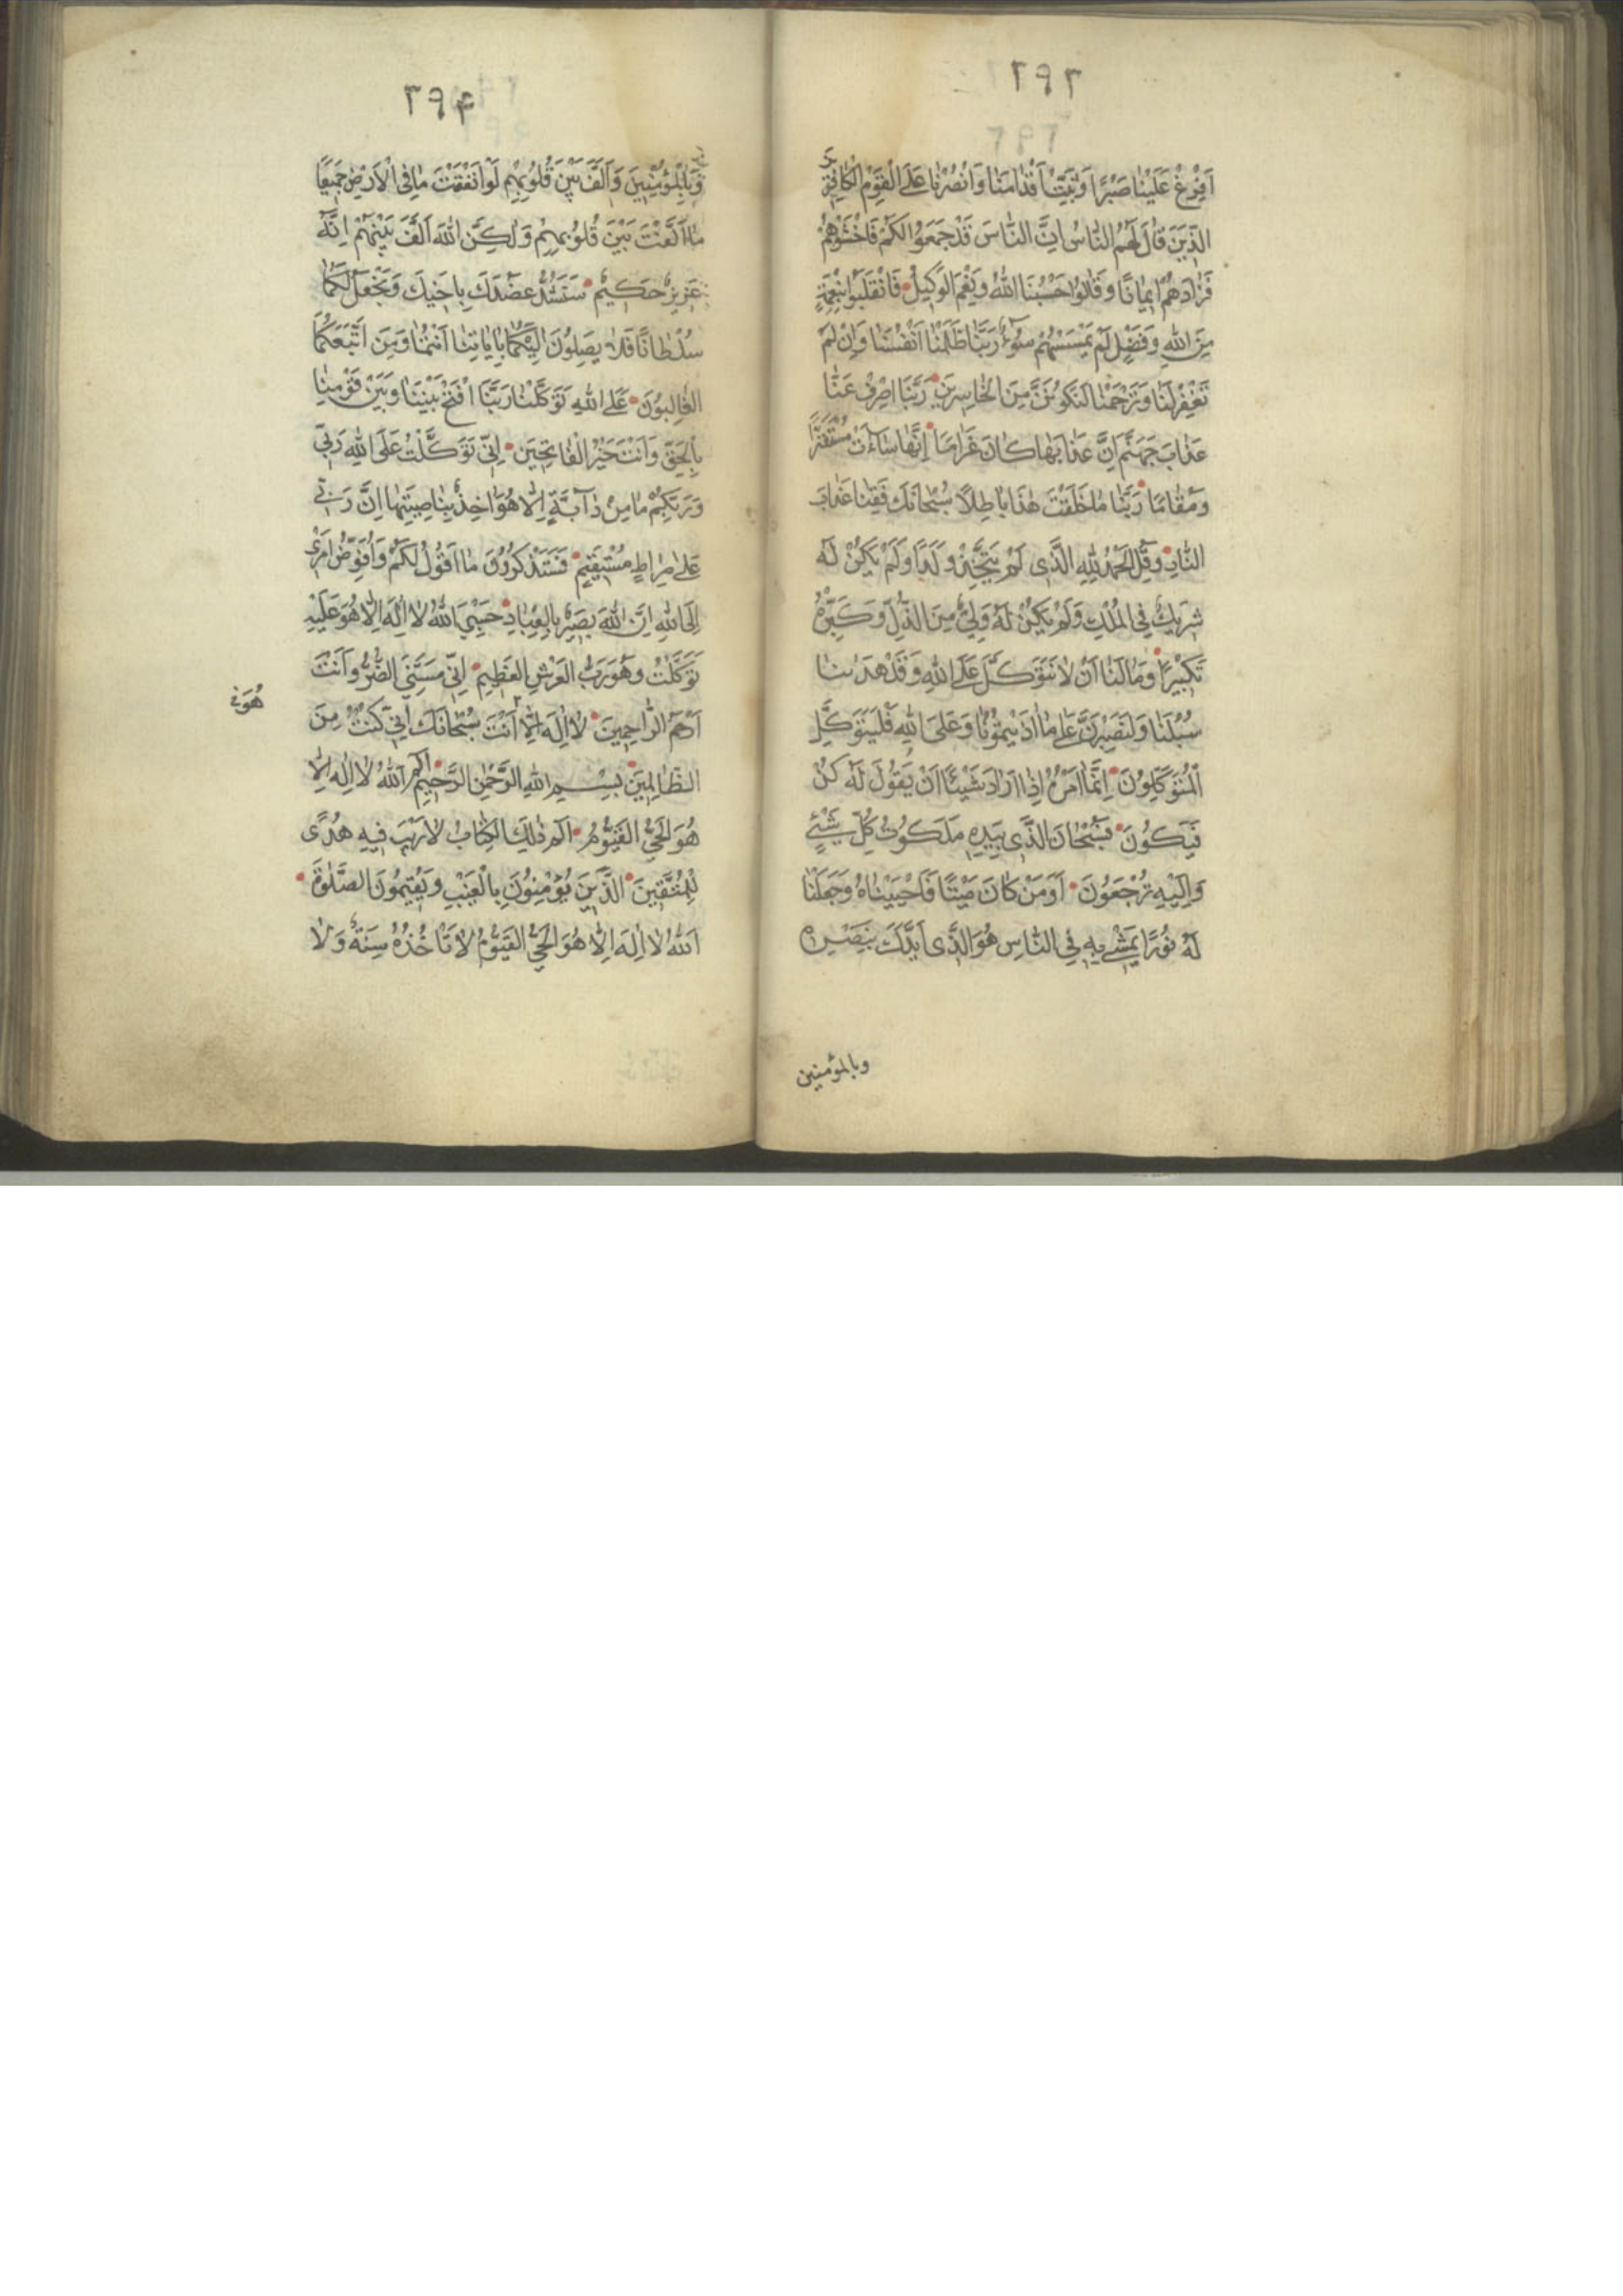 ٢٩٣
اَفْرِغْ عَلَيْنَا صَبْرًا وَثَبِّتْ اَقْدَامَنَا وَانْصُرْنَا عَلَى الْقَوْمِ الْكَافِرِينَ
الَّذِينَ قَالَ لَهُمُ النَّاسُ اِنَّ النَّاسَ قَدْ جَمَعُوا لَكُمْ فَاخْشَوْهُمْ
فَزَادَهُمْ اِيمَانًا وَقَالُوا حَسْبُنَا اللهُ وَنِعْمَ الْوَكِيلُ فَانْقَلَبُوا بِنِعْمَةٍ
مِنَ اللهِ وَفَضْلٍ لَمْ يَمْسَسْهُمْ سُوءٌ رَبَّنَا ظَلَمْنَا اَنْفُسَنَا وَاِنْ لَمْ
تَغْفِرْ لَنَا وَتَرْحَمْنَا لَنَكُونَنَّ مِنَ الْخَاسِرِينَ رَبَّنَا اصْرِفْ عَنَّا
عَذَابَ جَهَنَّمَ اِنَّ عَذَابَهَا كَانَ غَرَامًا اِنَّهَا سَاءَتْ مُسْتَقَرًّا
وَمُقَامًا رَبَّنَا مَا خَلَقْتَ هٰذَا بَاطِلًا سُبْحَانَكَ فَقِنَا عَذَابَ
النَّارِ وَقُلِ الْحَمْدُ لِلّٰهِ الَّذِى لَمْ يَتَّخِذْ وَلَدًا وَلَمْ يَكُنْ لَهُ
شَرِيكٌ فِى الْمُلْكِ وَلَمْ يَكُنْ لَهُ وَلِىٌّ مِنَ الذُّلِّ وَكَبِّرْهُ
تَكْبِيرًا وَمَا لَنَا اَنْ لَا نَتَوَكَّلَ عَلَى اللهِ وَقَدْ هَدٰىنَا
سُبُلَنَا وَلَنَصْبِرَنَّ عَلٰى مَا اٰذَيْتُمُونَا وَعَلَى اللهِ فَلْيَتَوَكَّلِ
الْمُتَوَكِّلُونَ اِنَّمَا اَمْرُهُ اِذَا اَرَادَ شَيْئًا اَنْ يَقُولَ لَهُ كُنْ
فَيَكُونُ فَسُبْحَانَ الَّذِى بِيَدِهِ مَلَكُوتُ كُلِّ شَيْءٍ
وَاِلَيْهِ تُرْجَعُونَ اَوَمَنْ كَانَ مَيْتًا فَاَحْيَيْنَاهُ وَجَعَلْنَا
لَهُ نُورًا يَمْشِى بِهِ فِى النَّاسِ هُوَ الَّذِى اَيَّدَكَ بِنَصْرِهِ
وبالمؤمنين
٢٩۴
وَبِالْمُؤْمِنِينَ وَاَلَّفَ بَيْنَ قُلُوبِهِمْ لَوْ اَنْفَقْتَ مَا فِى الْاَرْضِ جَمِيعًا
مَا اَلَّفْتَ بَيْنَ قُلُوبِهِمْ وَلٰكِنَّ اللهَ اَلَّفَ بَيْنَهُمْ اِنَّهُ
عَزِيزٌ حَكِيمٌ سَنَشُدُّ عَضُدَكَ بِاَخِيكَ وَنَجْعَلُ لَكُمَا
سُلْطَانًا فَلَا يَصِلُونَ اِلَيْكُمَا بِاٰيَاتِنَا اَنْتُمَا وَمَنِ اتَّبَعَكُمَا
الْغَالِبُونَ عَلَى اللهِ تَوَكَّلْنَا رَبَّنَا افْتَحْ بَيْنَنَا وَبَيْنَ قَوْمِنَا
بِالْحَقِّ وَاَنْتَ خَيْرُ الْفَاتِحِينَ اِنِّى تَوَكَّلْتُ عَلَى اللهِ رَبِّى
وَرَبِّكُمْ مَا مِنْ دَآبَّةٍ اِلَّا هُوَ اٰخِذٌ بِنَاصِيَتِهَا اِنَّ رَبِّى
عَلٰى صِرَاطٍ مُسْتَقِيمٍ فَسَتَذْكُرُونَ مَا اَقُولُ لَكُمْ وَاُفَوِّضُ اَمْرِى
اِلَى اللهِ اِنَّ اللهَ بَصِيرٌ بِالْعِبَادِ حَسْبِىَ اللهُ لَا اِلٰهَ اِلَّا هُوَ عَلَيْهِ
تَوَكَّلْتُ وَهُوَ رَبُّ الْعَرْشِ الْعَظِيمِ اِنِّى مَسَّنِىَ الضُّرُّ وَاَنْتَ
اَرْحَمُ الرَّاحِمِينَ لَا اِلٰهَ اِلَّا اَنْتَ سُبْحَانَكَ اِنِّى كُنْتُ مِنَ
الظَّالِمِينَ بِسْمِ اللهِ الرَّحْمٰنِ الرَّحِيمِ الٓمٓ اللهُ لَا اِلٰهَ اِلَّا
هُوَ الْحَىُّ الْقَيُّومُ الٓمٓ ذٰلِكَ الْكِتَابُ لَا رَيْبَ فِيهِ هُدًى
لِلْمُتَّقِينَ الَّذِينَ يُؤْمِنُونَ بِالْغَيْبِ وَيُقِيمُونَ الصَّلٰوةَ
اَللهُ لَا اِلٰهَ اِلَّا هُوَ الْحَىُّ الْقَيُّومُ لَا تَأْخُذُهُ سِنَةٌ وَلَا